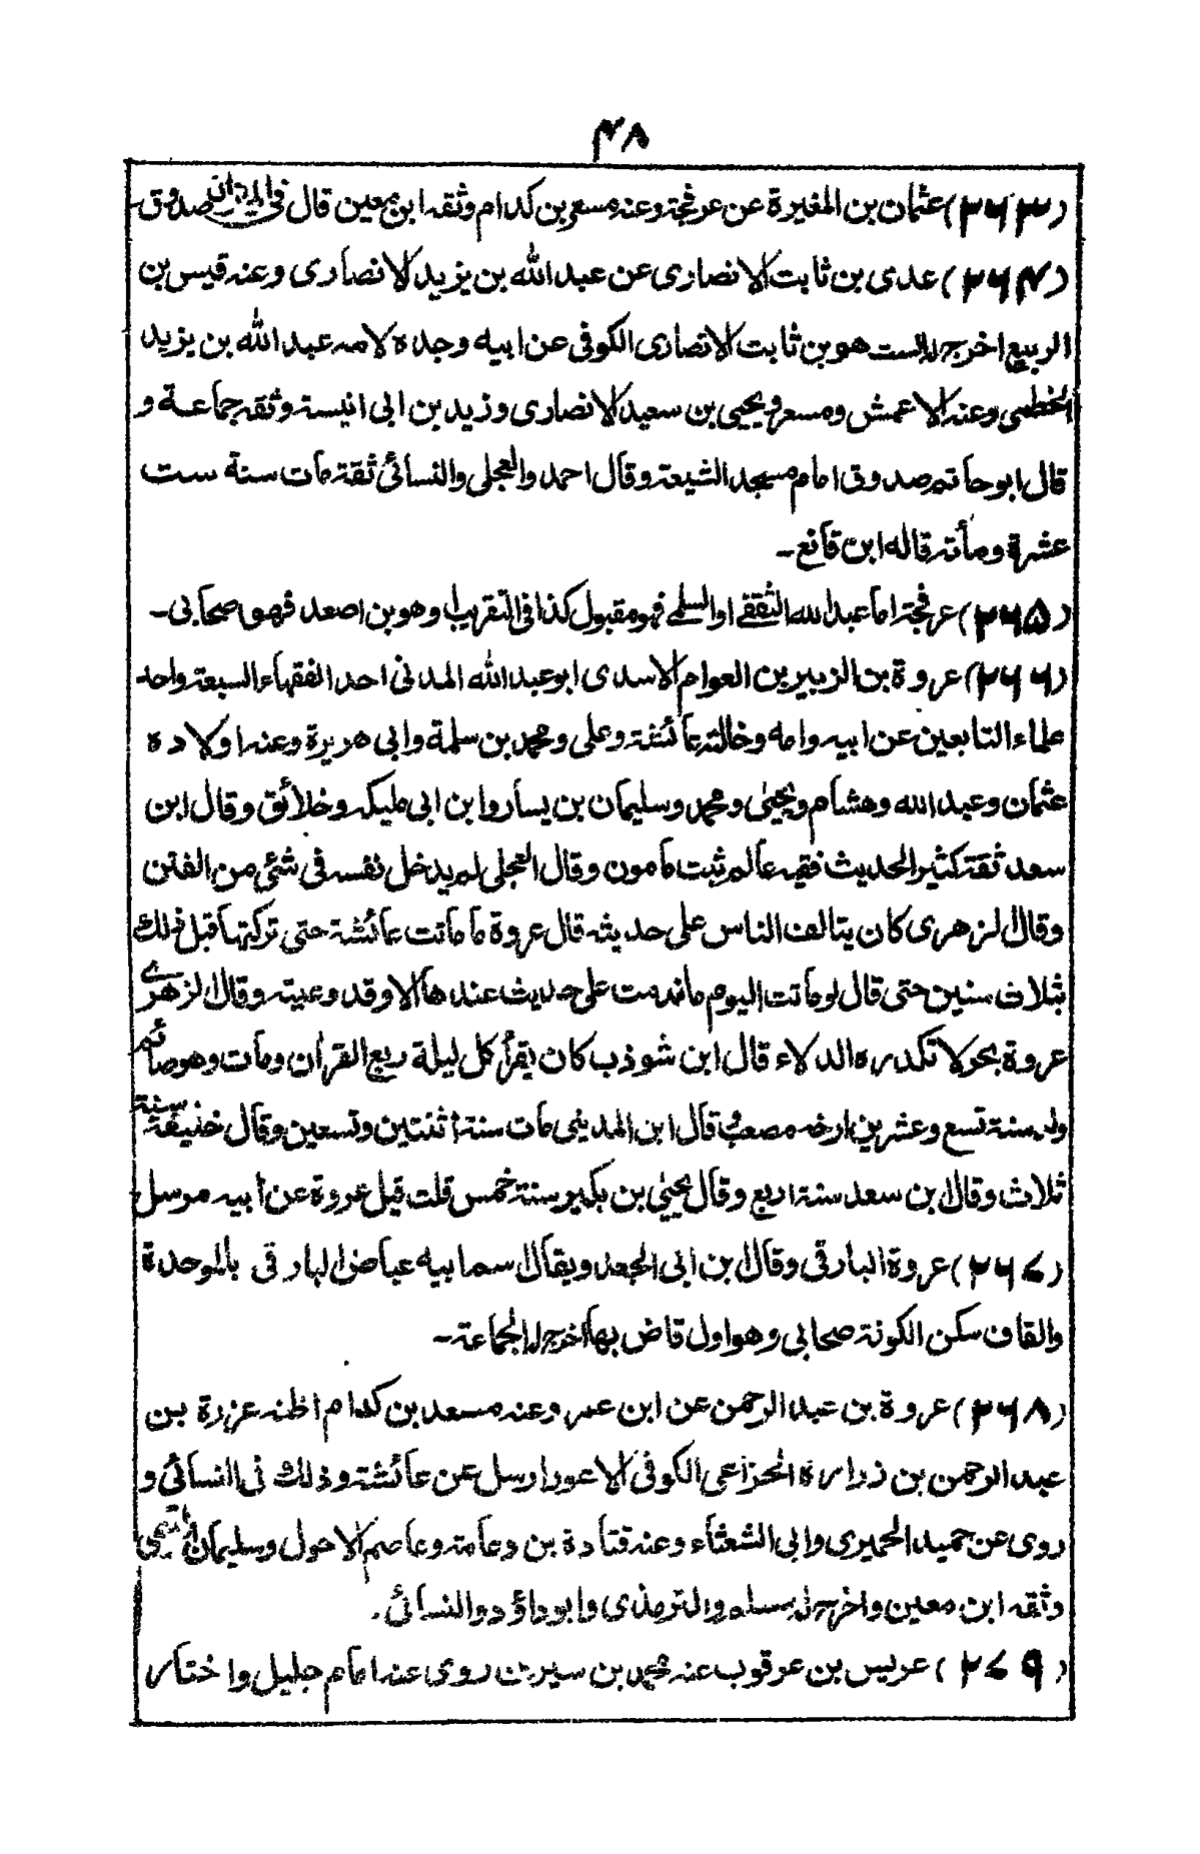 ۴۸
(۲۶۳) عثمان بن المغيرة عن عرفجة وعنه مسعر بن كدام وثقه ابن معين قال فى الميزان صدوق
(۲۶۴) عدى بن ثابت الانصارى عن عبد الله بن يزيد الانصارى وعنه قيس بن
الربيع اخرج له الست هو بن ثابت الانصارى الكوفى عن ابيه وجده لامه عبد الله بن يزيد
الخطمى وعنه الاعمش ومسعر ويحيى بن سعيد الانصارى وزيد بن ابى انيسة وثقه جماعة و
قال ابو حاتم صدوق امام مسجد الشيعة وقال احمد والعجلى والنسائى ثقة مات سنة ست
عشرة ومأته قاله ابن قانع۔
(۲۶۵) عرفجة اما عبد الله الثقفے او السلمے فهو مقبول كذا فى التقريب او هو بن اصعد فهو صحابى۔
(۲۶۶) عروة بن الزبير بن العوام الاسدى ابو عبد الله المدنى احد الفقهاء السبعة واحد
علماء التابعين عن ابيه وامه وخالته عائشة وعلى ومحمد بن سلمة وابى هريرة وعنه اولاده
عثمان وعبد الله وهشام ويحيىٰ ومحمد وسليمان بن يسار وابن ابى مليكه وخلائق وقال ابن
سعد ثقة كثير الحديث فقيه عالم ثبت مامون وقال العجلى لم يدخل نفسه فى شئى من الفتن
وقال الزهرى كان يتالف الناس على حديثه قال عروة ما ماتت عائشة حتى تركتها قبل ذلك
بثلاث سنين حتى قال لو ماتت اليوم ما ندمت على حديث عندها الا وقد وعيته وقال الزهرے
عروة بحر لا تكدره الدلاء قال ابن شوذب كان يقرأ كل ليلة ربع القرأن ومات وهو صائم
ولد سنة تسع وعشرين ارخه مصعب قال ابن المدينى مات سنة اثنتين وتسعين وقال خنيفة سنة
ثلاث وقال ابن سعد سنة اربع وقال يحيىٰ بن بكير سنة خمس قلت قيل عروة عن ابيه مرسل
(۲۶۷) عروة البارقى وقال ابن ابى الجعد ويقال اسم ابيه عياض البارقى بالموحدة
والقاف سكن الكوفة صحابى وهو اول قاض بها اخرج له الجماعة۔
(۲۶۸) عروة بن عبد الرحمن عن ابن عمر وعنه مسعد بن كدام اظنه عزرة بن
عبد الرحمن بن زرارة الخزاعى الكوفى الاعور ارسل عن عائشة وذلك فى النسائى و
روى عن حميد الحميرى وابى الشعثاء وعنه قتادة بن دعامة وعاصم الاحول وسليمان التيمى
وثقه ابن معين واخرج له مسلم والترمذى وابو داؤد والنسائى.
(۲۷۹) عريس بن عرقوب عنه محمد بن سيرين روى عنه امام جليل واختار